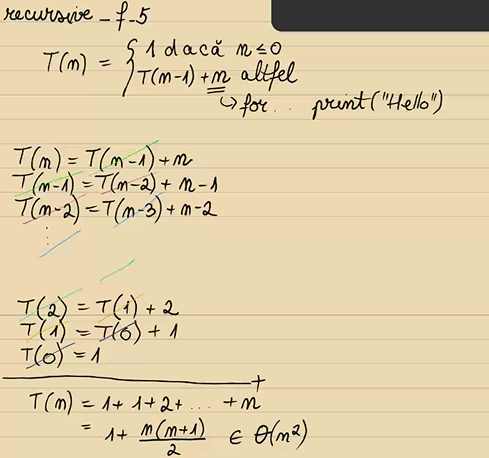 recursive_f_5
T(n) = { 1 dacă n ≤ 0
T(n-1) + n altfel
↳ for... print("Hello")
T(n) = T(n-1) + n
T(n-1) = T(n-2) + n-1
T(n-2) = T(n-3) + n-2
⋮
T(2) = T(1) + 2
T(1) = T(0) + 1
T(0) = 1
+
T(n) = 1 + 1 + 2 + ... + n
= 1 + n(n+1)/2 ∈ Θ(n²)